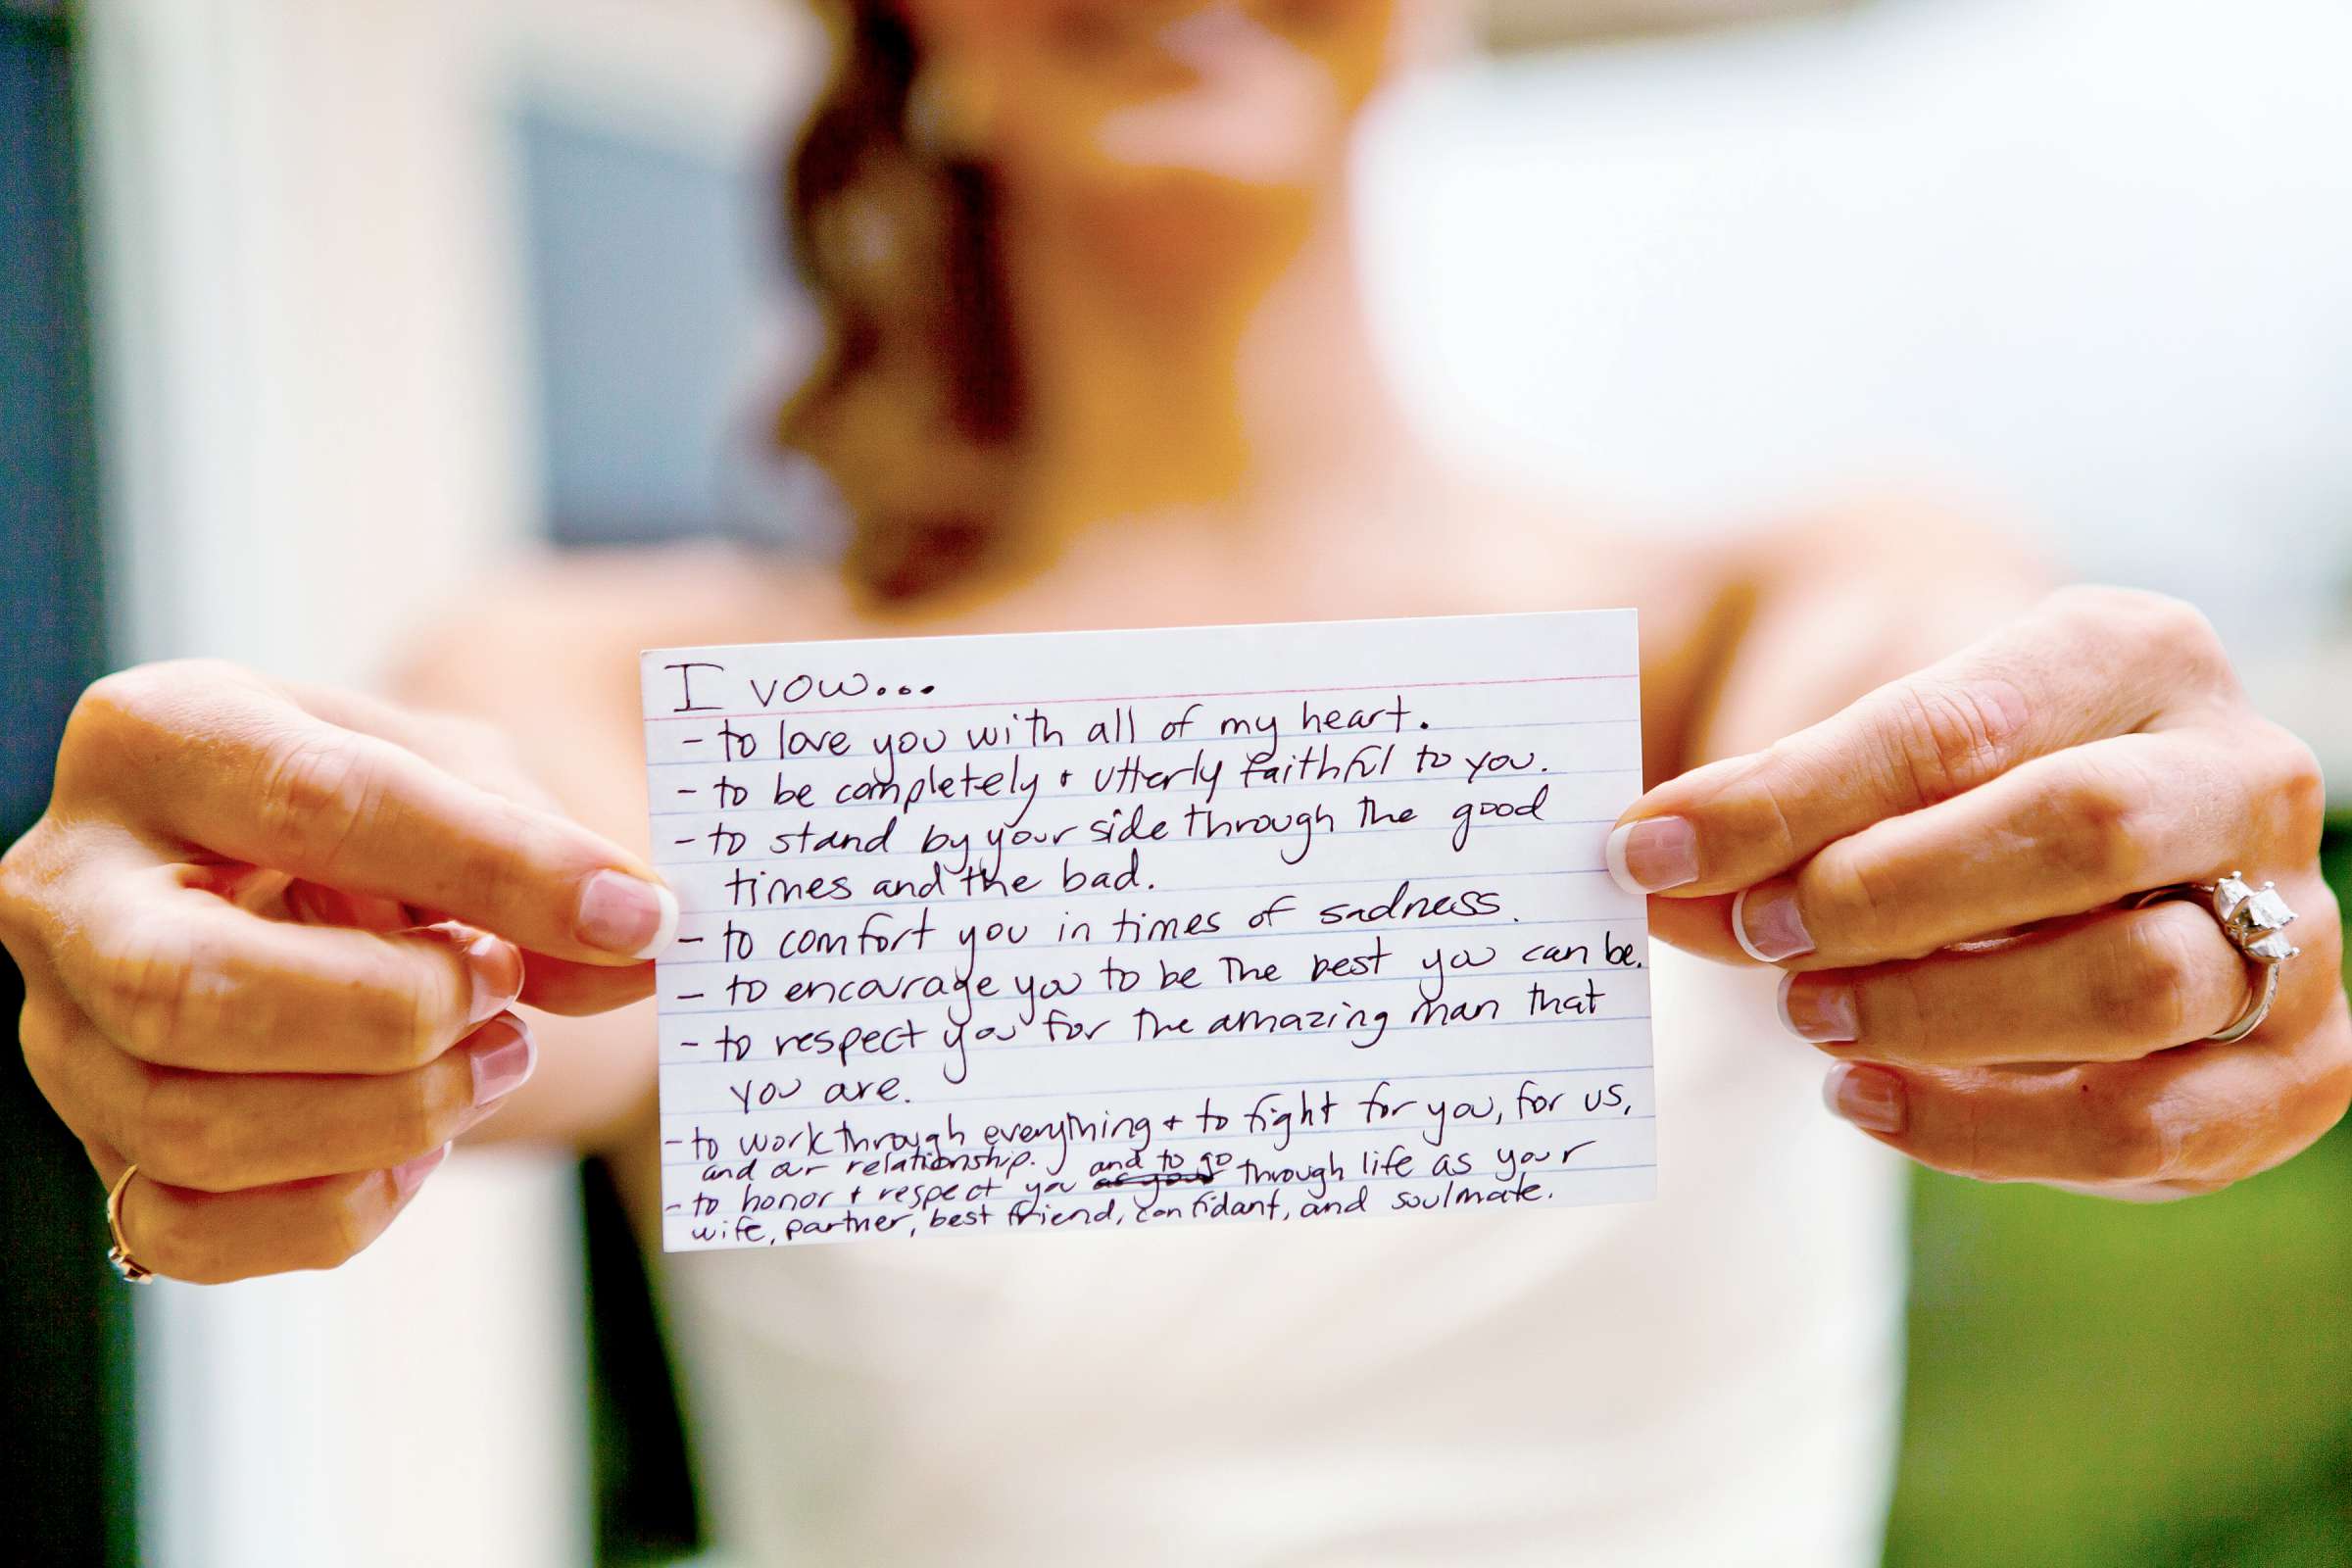 I vow...
- to love you with all of my heart.
- to be completely + utterly faithful to you.
- to stand by your side through the good
times and the bad.
- to comfort you in times of sadness.
- to encourage you to be the best you can be.
- to respect you for the amazing man that
you are.
- to work through everything + to fight for you, for us,
and our relationship.
- to honor + respect you and to go through life as your
wife, partner, best friend, confidant, and soulmate.